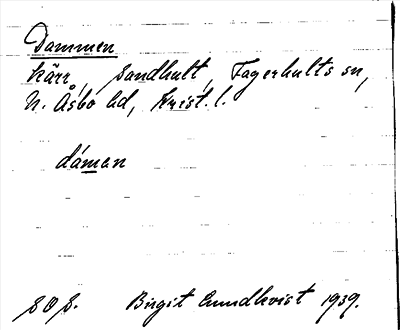 Dammen
kärr, Sandhult, Fagerhults sn,
N. Åsbo hd, Krist. l.
dámen
SOS. Birgit Cunndkvist 1939.